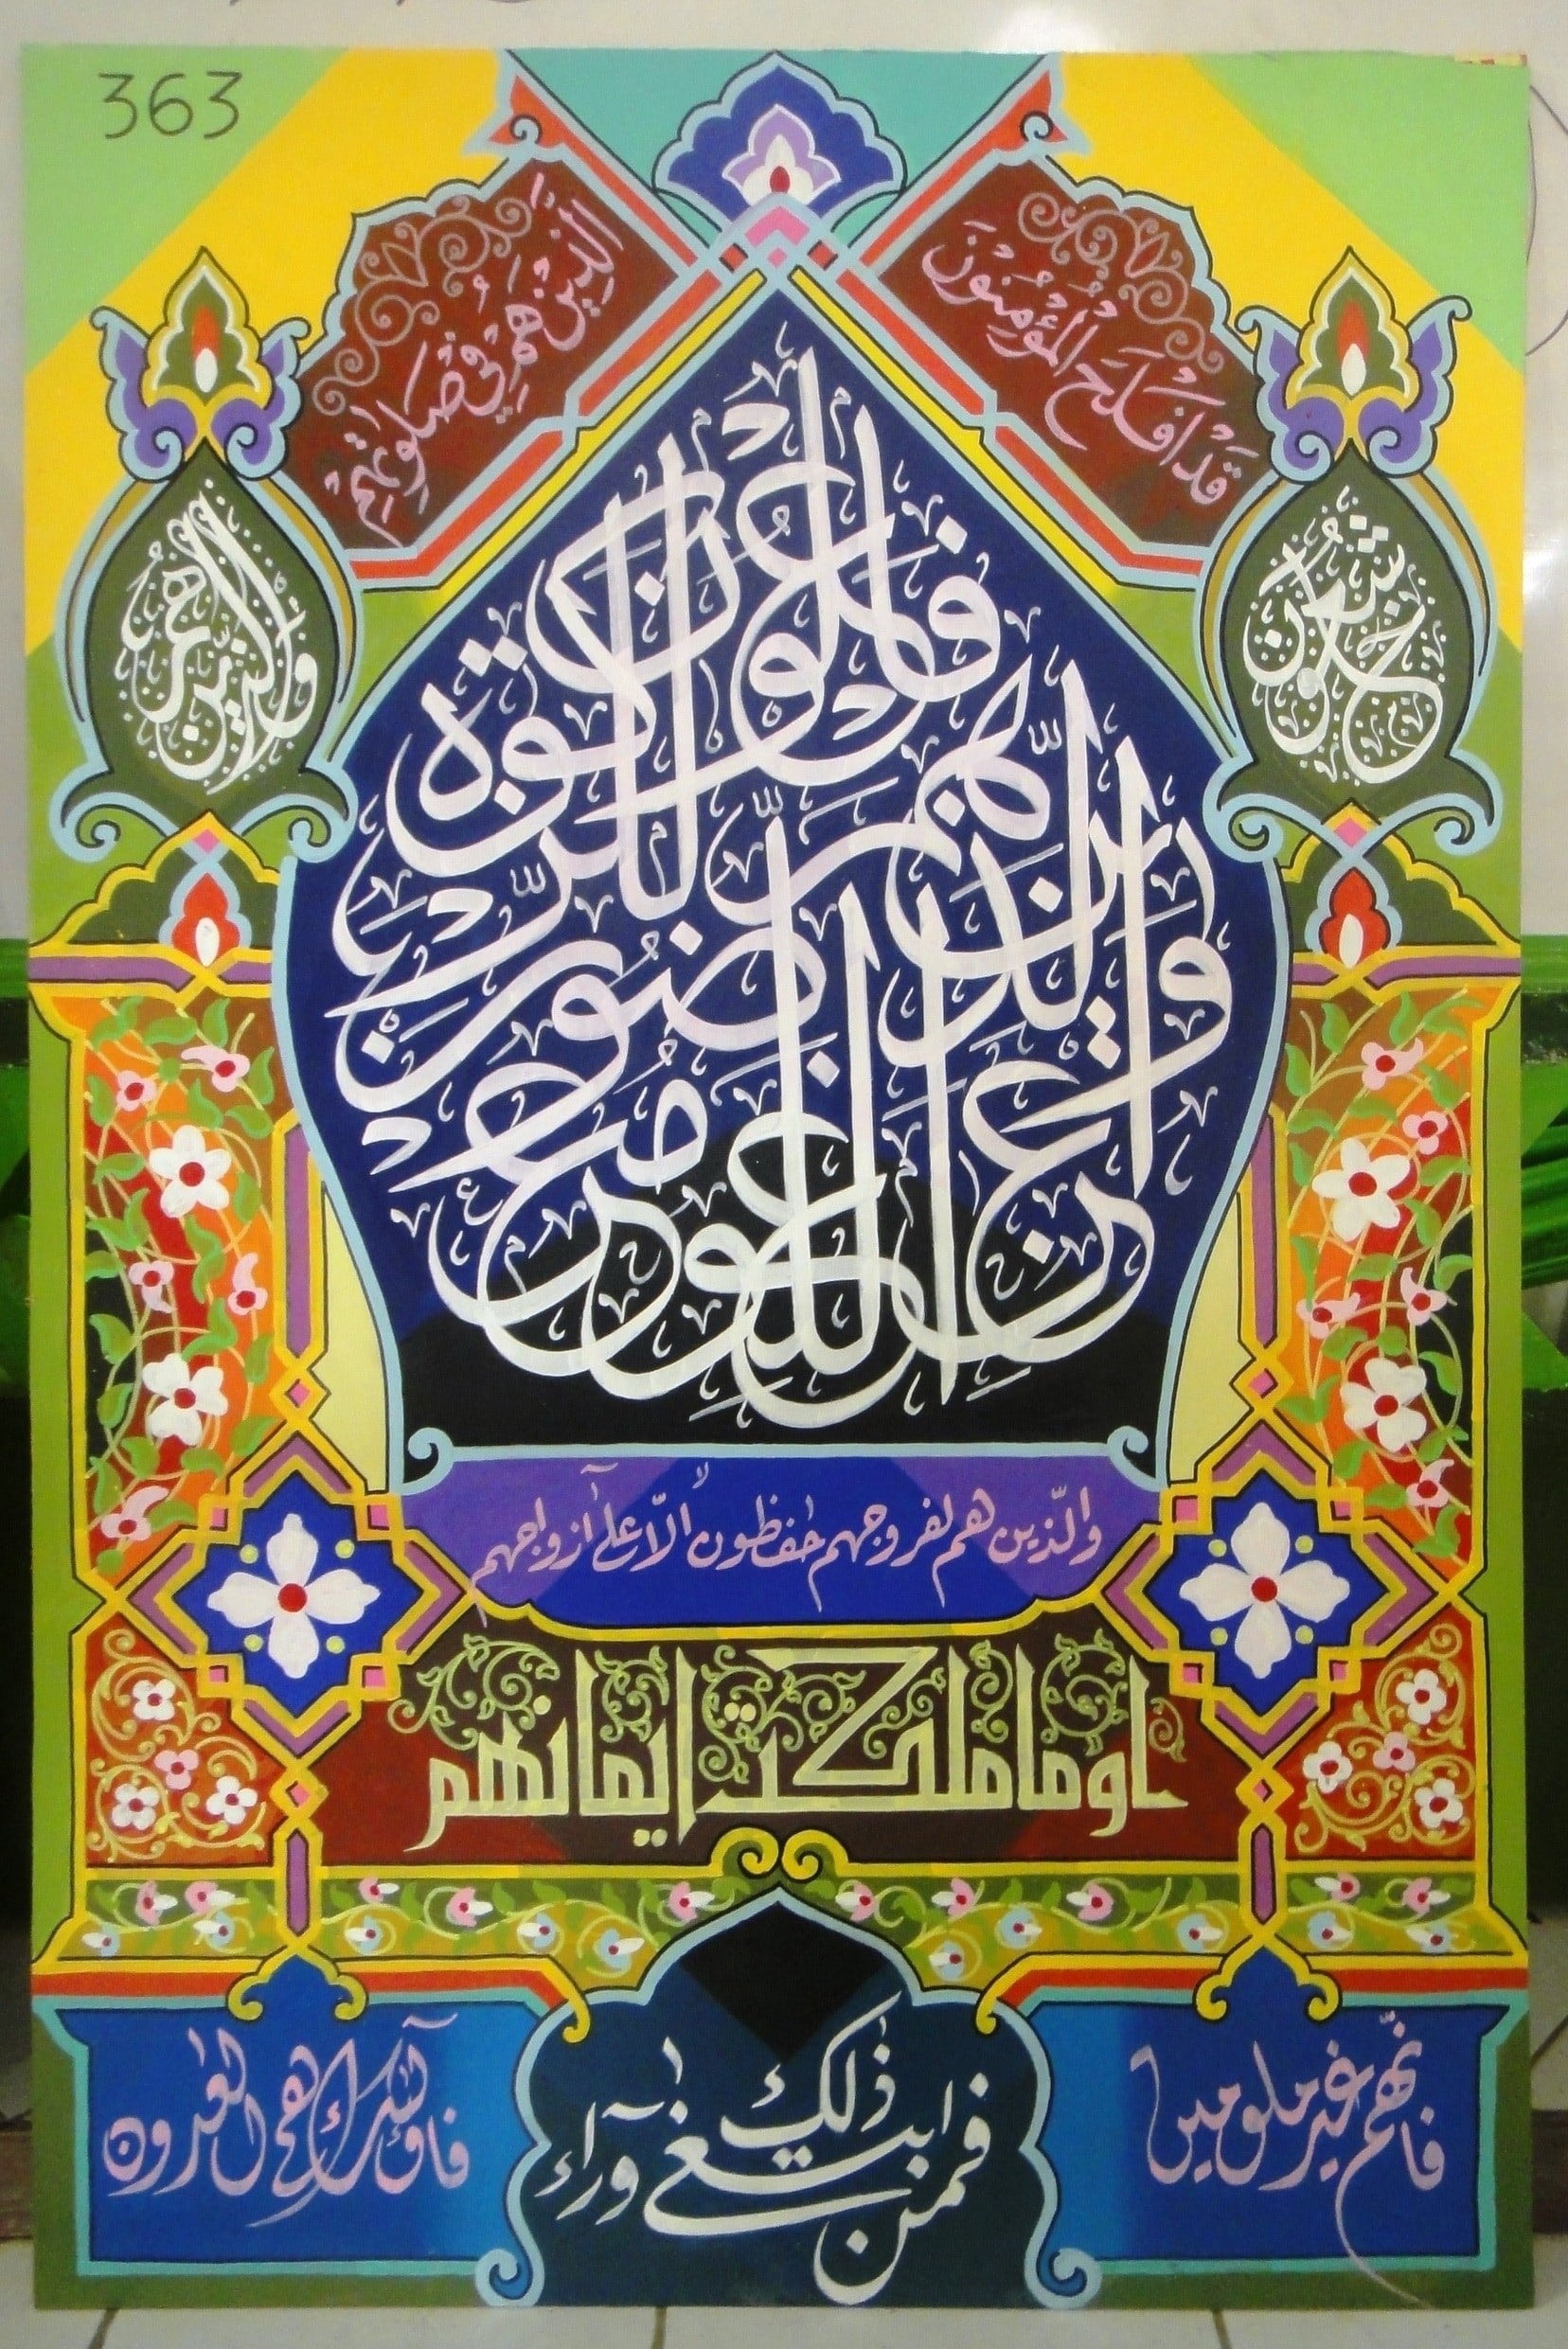 363
قَدْ اَفْلَحَ الْمُؤْمِنُوْنَ
الَّذِيْنَ هُمْ فِيْ صَلَاتِهِمْ
خٰشعون
والذين هم
عن اللغو معرضون
والذين هم للزكوة فاعلون
والّذين هم لفروجهم حٰفظون الّا علىٓ ازواجهم
او ما ملكت ايمانهم
فانّهم غير ملومين
فمن ابتغى ورآء ذٰلك
فاولٓئك هم العٰدون